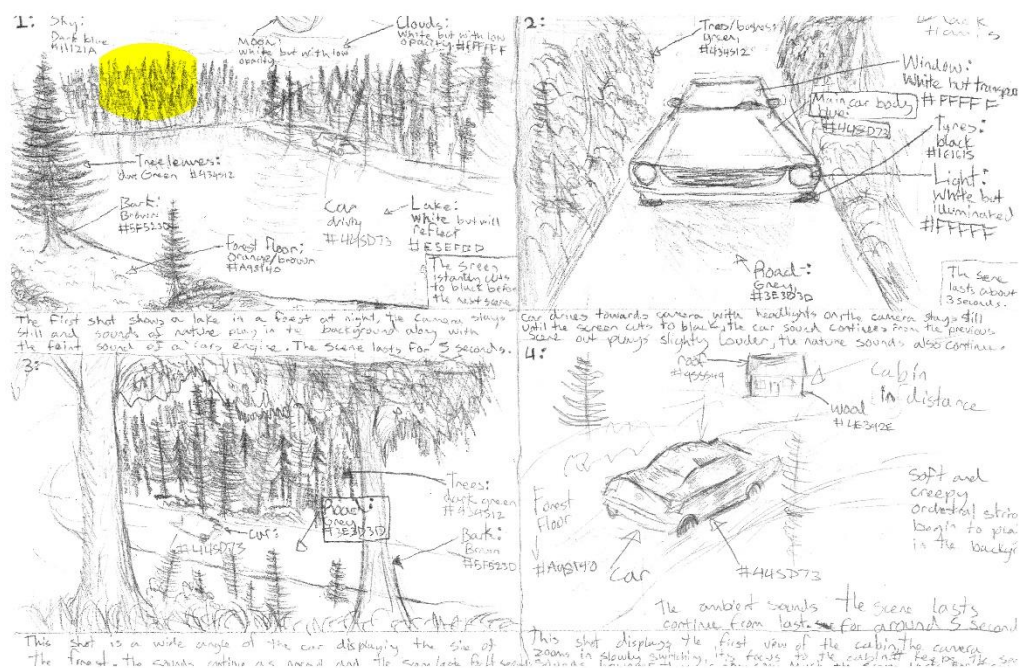 1:
Sky:
Dark blue
#11121A
Moon:
white but with low
opacity
Clouds:
White but with low
opacity #FFFFFF
Tree leaves:
dark Green #434512
Bark:
Brown
#5F523D
Forest floor:
Orange/brown
#A98140
Car
driving
#445D73
Lake:
White but will
reflect
The Screen
instantly cuts
to black before
the next scene
The first shot shows a lake in a forest at night, the camera stays
still, sounds of nature play in the background along with
the faint sound of a cars engine. The Scene lasts for 5 seconds.
2:
Trees/bushes
green,
#434512
Window:
White but
#FFFFF
Main car body
blue:
#445D73
Tyres:
black
Light:
White but
illuminated
#FFFFF
Road:
Grey
#3E3D3D
The scene
lasts about
3 seconds.
Car drives towards camera with headlights on the camera stays still
until the screen cuts to black, the car sound continues from the previous
scene but plays slightly louder, the nature sounds also continue.
3:
Trees:
dark green
#434512
Road:
Grey
#3E3D3D
car:
#445D73
Bark:
Brown
#5F523D
This shot is a wide angle of the car displaying the size of
the forest, the sounds continue as
4:
roof
Cabin
in distance
wood
#4E392E
Forest
Floor
#A98140
Car
#445D73
Soft and
creepy
orchestral
begin to
in the
The ambient sounds
continue from last.
The scene lasts
for around 5 second
This shot displays the first view of the cabin, the camera
zooms in slowly switching its focus to the cabin